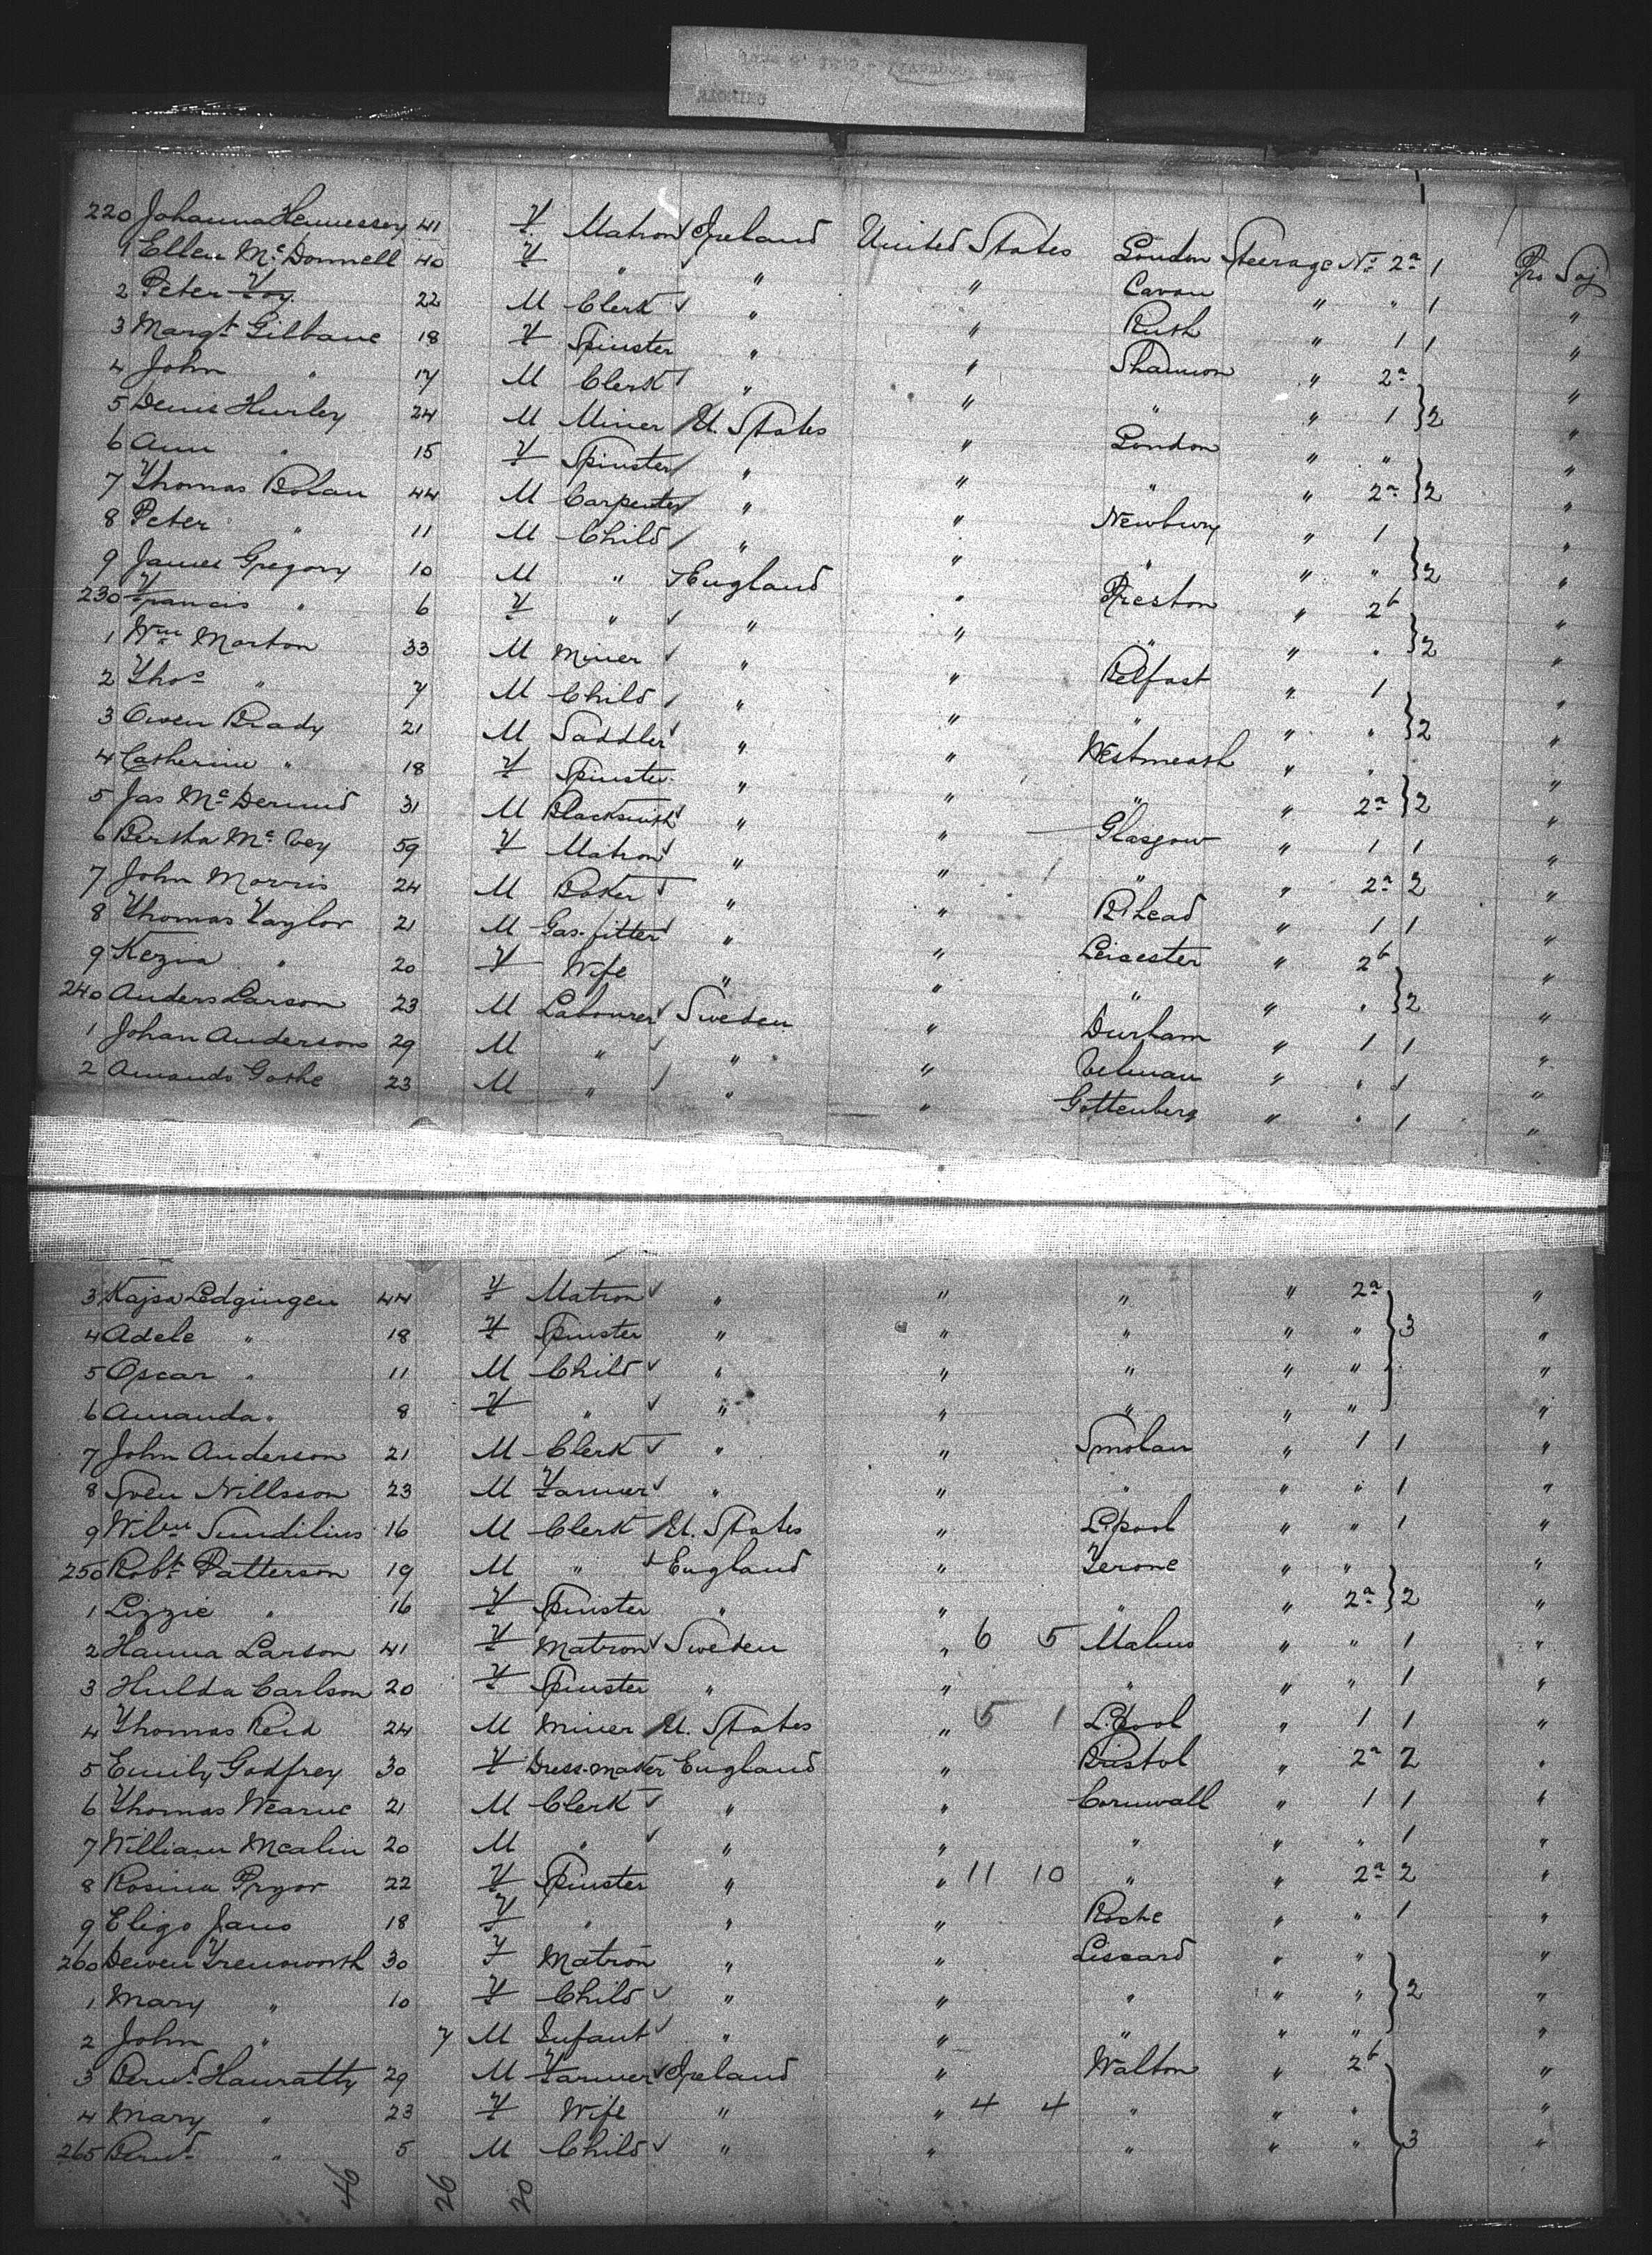 220 Johanna Hennessey 41 F Matron Ireland United States London Steerage No 2a 1 Pro Soj
1 Ellen Mc Donnell 40 F " " " Cavan " " 1 "
2 Peter Foy 22 M Clerk " " Rush " 1 1 "
3 Margt Gilbane 18 F Spinster " " Shannon " 2a "
4 John " 17 M Clerk " " " " 1 } 2 "
5 Denis Hurley 24 M Miner U. States " London " " "
6 Ann " 15 F Spinster " " " " 2a } 2 "
7 Thomas Bolan 44 M Carpenter " " Newbury " 1 "
8 Peter " 11 M Child " " " " " } 2 "
9 James Gregory 10 M " England " Preston " 2b "
230 Francis " 6 F " " " " " " } 2 "
1 Wm Morton 33 M Miner " " Belfast " 1 "
2 Thos " 7 M Child " " " " " } 2 "
3 Owen Brady 21 M Saddler " " Westmeath " " "
4 Catherine " 18 F Spinster " " " " 2a } 2 "
5 Jas Mc Dermid 31 M Blacksmith " " Glasgow " 1 1 "
6 Bertha Mc Coy 59 F Matron " " " " 2a 2 "
7 John Morris 24 M Baker " " B'head " 1 1 "
8 Thomas Taylor 21 M Gas-fitter " " Leicester " 2b "
9 Kezia " 20 F Wife " " " " " } 2 "
240 Anders Larson 23 M Labourer Sweden " Durham " 1 1 "
1 Johan Anderson 29 M " " " " " 1 "
2 Amando 23 M " " " Gottenberg " " 1 "
3 Kajsa Ledgingen 44 F Matron " " " " 2a "
4 Adele " 18 F Spinster " " " " " } 3 "
5 Oscar " 11 M Child " " " " " "
6 Amanda " 8 F " " " " " " "
7 John Anderson 21 M Clerk " " Smolan " 1 1 "
8 Sven Nillsson 23 M Farmer " " " " " 1 "
9 Wilm Sundilius 16 M Clerk U. States " L'pool " " 1 "
250 Robt Patterson 19 M " England " Tyrone " " "
1 Lizzie " 16 F Spinster " " " " 2a } 2 "
2 Hanna Larson 41 F Matron Sweden " 6 5 Malmo " " 1 "
3 Hulda Carlson 20 F Spinster " " " " " 1 "
4 Thomas Reid 24 M Miner U. States " 5 1 L'pool " 1 1 "
5 Emily Godfrey 30 F Dress-maker England " Bristol " 2a 2 "
6 Thomas Wearne 21 M Clerk " " Cornwall " 1 1 "
7 William 20 M " " " " " " 1 "
8 Rosina Pryor 22 F Spinster " " 11 10 " " 2a 2 "
9 18 F " " " Roche " " 1 "
260 30 F Matron " " Lissard " " "
1 Mary " 10 F Child " " " " " } 2 "
2 John " 7 M Infant " " " " " "
3 Bernd Hanratty 29 M Farmer Ireland " Walton " 2b "
4 Mary " 23 F Wife " " 4 4 " " " "
265 Bernd " 5 M Child " " " " " } 3 "
46 26 20